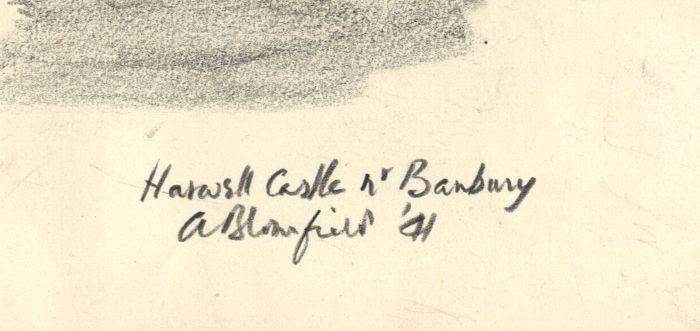 Harwell Castle nr Banbury
A Blomfield '41